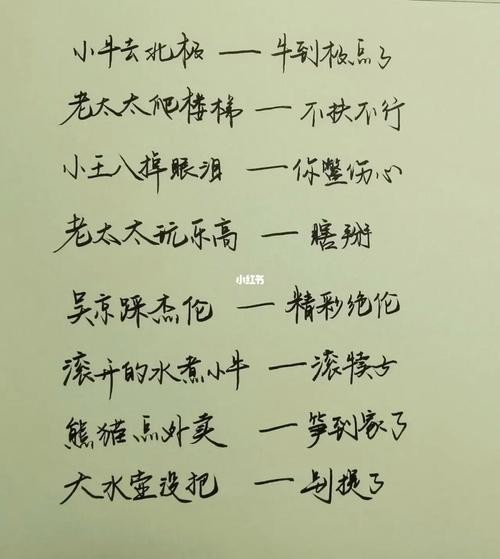 小牛去北极 — 牛到极点了
老太太爬楼梯 — 不扶不行
小王八掉眼泪 — 你鳖伤心
老太太玩乐高 — 瞎掰
小红书
吴京踩杰伦 — 精彩绝伦
滚开的水煮小牛 — 滚犊子
熊猫点外卖 — 笋到家了
大水壶没把 — 别提了